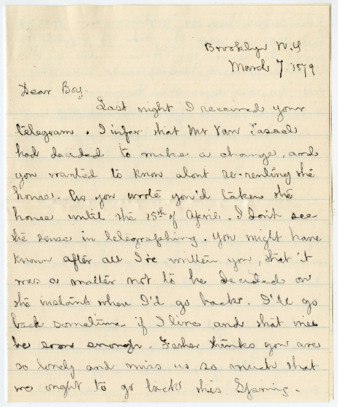 Brooklyn N.Y
March 7 1879
Dear Boy.
Last night I received your
telegram. I infer that Mr Van Tassel
had decided to make a change, and
you wanted to know about re-renting the
house. But you wrote you'd taken the
house until the 15th of April. I don't see
the sense in telegraphing. You might have
known after all I've written you, that it
was a matter not to be decided on
the instant when I'd go back. I'll go
back sometime if I live and that will
be soon enough. Father thinks you are
so lonely and miss us so much that
we ought to go back this Spring.